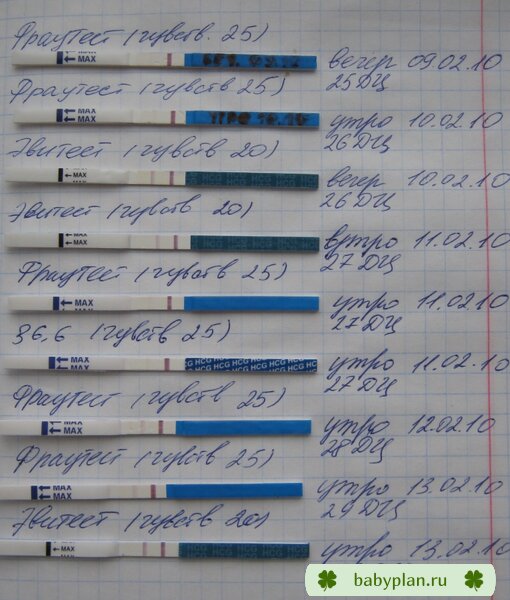 Фраутест (чувств. 25)
← MAX
вечер 09.02.10
25 ДЦ
Фраутест (чувств 25)
← MAX
утро 10.02.10
26 ДЦ
Эвитест (чувств 20)
← MAX
HCG HCG HCG HCG
вечер 10.02.10
26 ДЦ
Эвитест (чувств 20)
← MAX
HCG HCG HCG HCG
утро 11.02.10
27 ДЦ
Фраутест (чувств 25)
← MAX
утро 11.02.10
27 ДЦ
36,6 (чувств 25)
← MAX
HCG HCG HCG HCG
утро 11.02.10
27 ДЦ
Фраутест (чувств 25)
← MAX
утро 12.02.10
28 ДЦ
Фраутест (чувств 25)
← MAX
утро 13.02.10
29 ДЦ
Эвитест (чувств 20)
← MAX
HCG HCG HCG HCG
утро 13.02.10
babyplan.ru